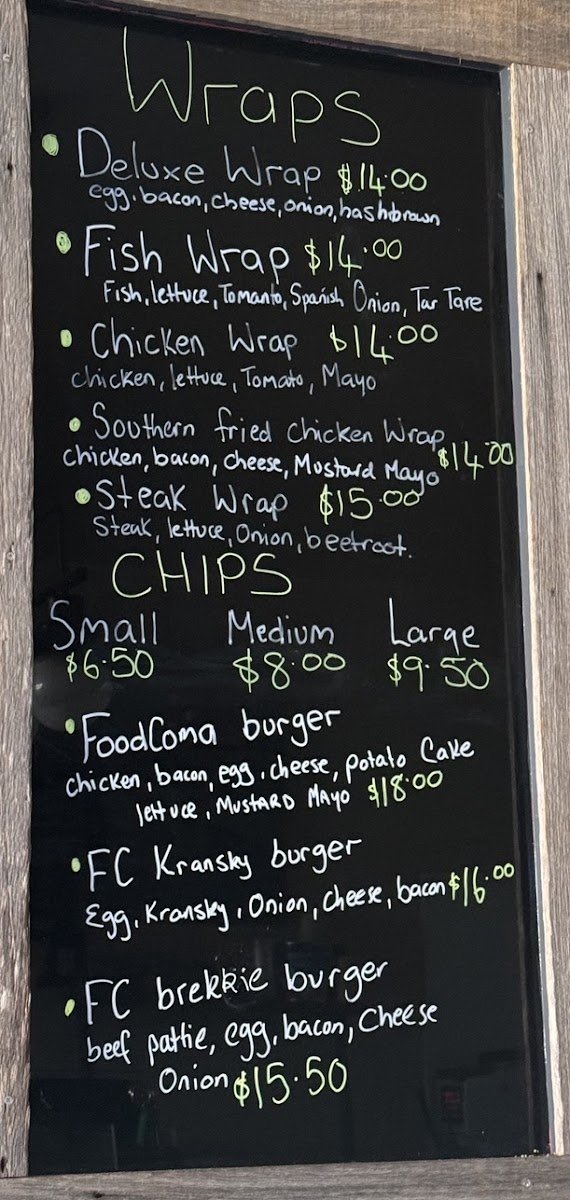 Wraps
Deluxe Wrap $14.00
egg, bacon, cheese, onion, hashbrown
Fish Wrap $14.00
Fish, lettuce, Tomanto, Spanish Onion, Tar Tare
Chicken Wrap $14.00
chicken, lettuce, Tomato, Mayo
Southern fried chicken Wrap
chicken, bacon, cheese, Mustard Mayo $14.00
Steak Wrap $15.00
Steak, lettuce, Onion, beetroot.
CHIPS
Small Medium Large
$6.50 $8.00 $9.50
FoodComa burger
chicken, bacon, egg, cheese, potato Cake
lettuce, MUSTARD MAYO $18.00
FC Kransky burger
Egg, Kransky, Onion, cheese, bacon $16.00
FC brekkie burger
beef pattie, egg, bacon, Cheese
Onion $15.50